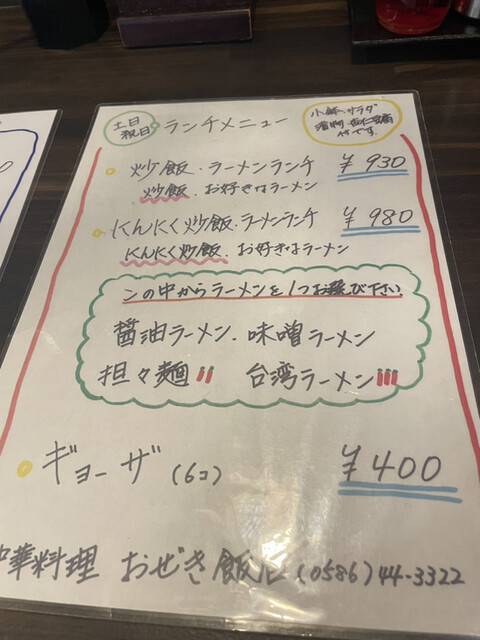 土日
祝日
ランチメニュー
小鉢、サラダ
漬物 杏仁豆腐
付です。
炒飯・ラーメンランチ ¥930
炒飯・お好きなラーメン
にんにく炒飯・ラーメンランチ ¥980
にんにく炒飯・お好きなラーメン
この中からラーメンを1つお選び下さい
醤油ラーメン・味噌ラーメン
担々麺 台湾ラーメン
ギョーザ(6コ) ¥400
中華料理 おぜき飯店(0586)44-3322